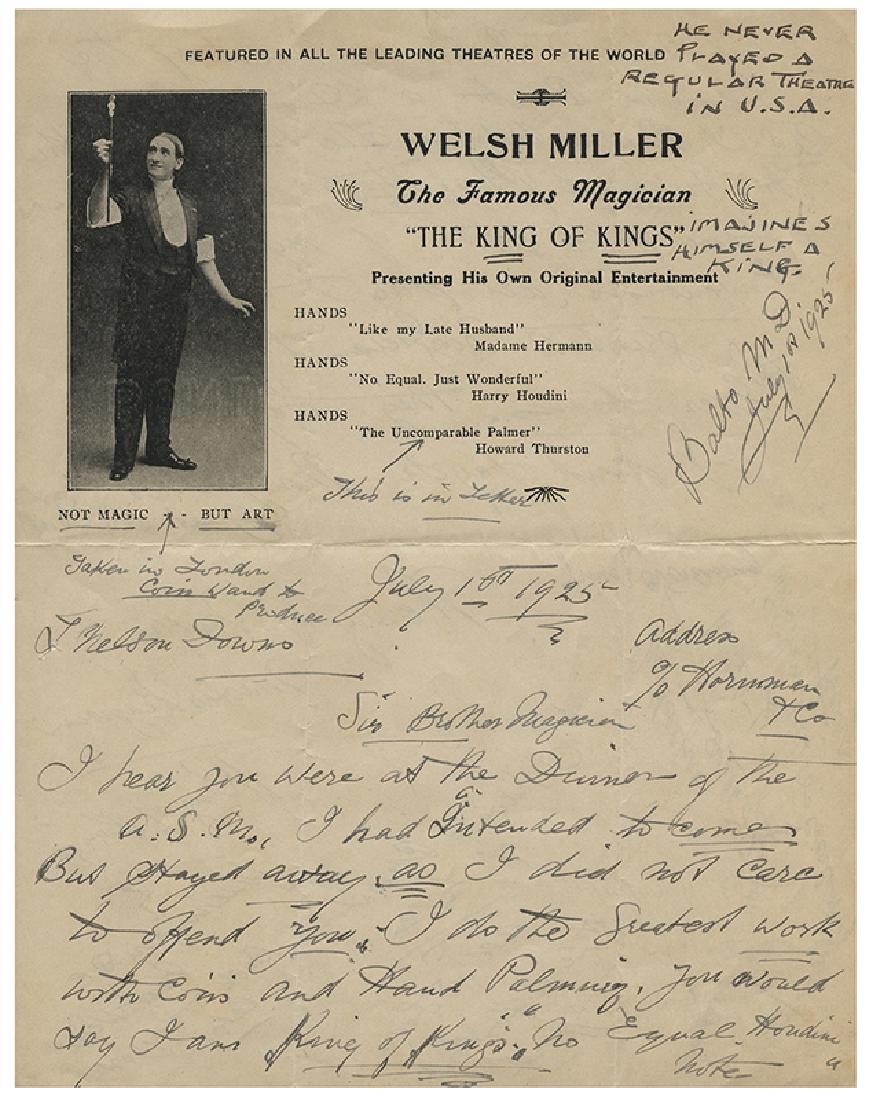 FEATURED IN ALL THE LEADING THEATRES OF THE WORLD
HE NEVER
PLAYED A
REGULAR THEATRE
IN U.S.A.
WELSH MILLER
The Famous Magician
"THE KING OF KINGS"
IMAJINES
HIMSELF A
KING.
Presenting His Own Original Entertainment
HANDS
"Like my Late Husband"
Madame Hermann
HANDS
"No Equal. Just Wonderful"
Harry Houdini
HANDS
"The Uncomparable Palmer"
Howard Thurston
Balto MD
July 1st 1925
This is in Letter
NOT MAGIC - - BUT ART
Taken in London
Coin Wand to
Produce
July 1st 1925
T Nelson Downs
Address
c/o Hornmann
& Co
Sir Brother Magician
I hear you were at the Dinner of the
A.S.M., I had Intended to come
But stayed away, as I did not care
to offend you. I do the greatest work
with coins and Hand Palming. You would
say I am "King of Kings" "No Equal Houdini"
Note